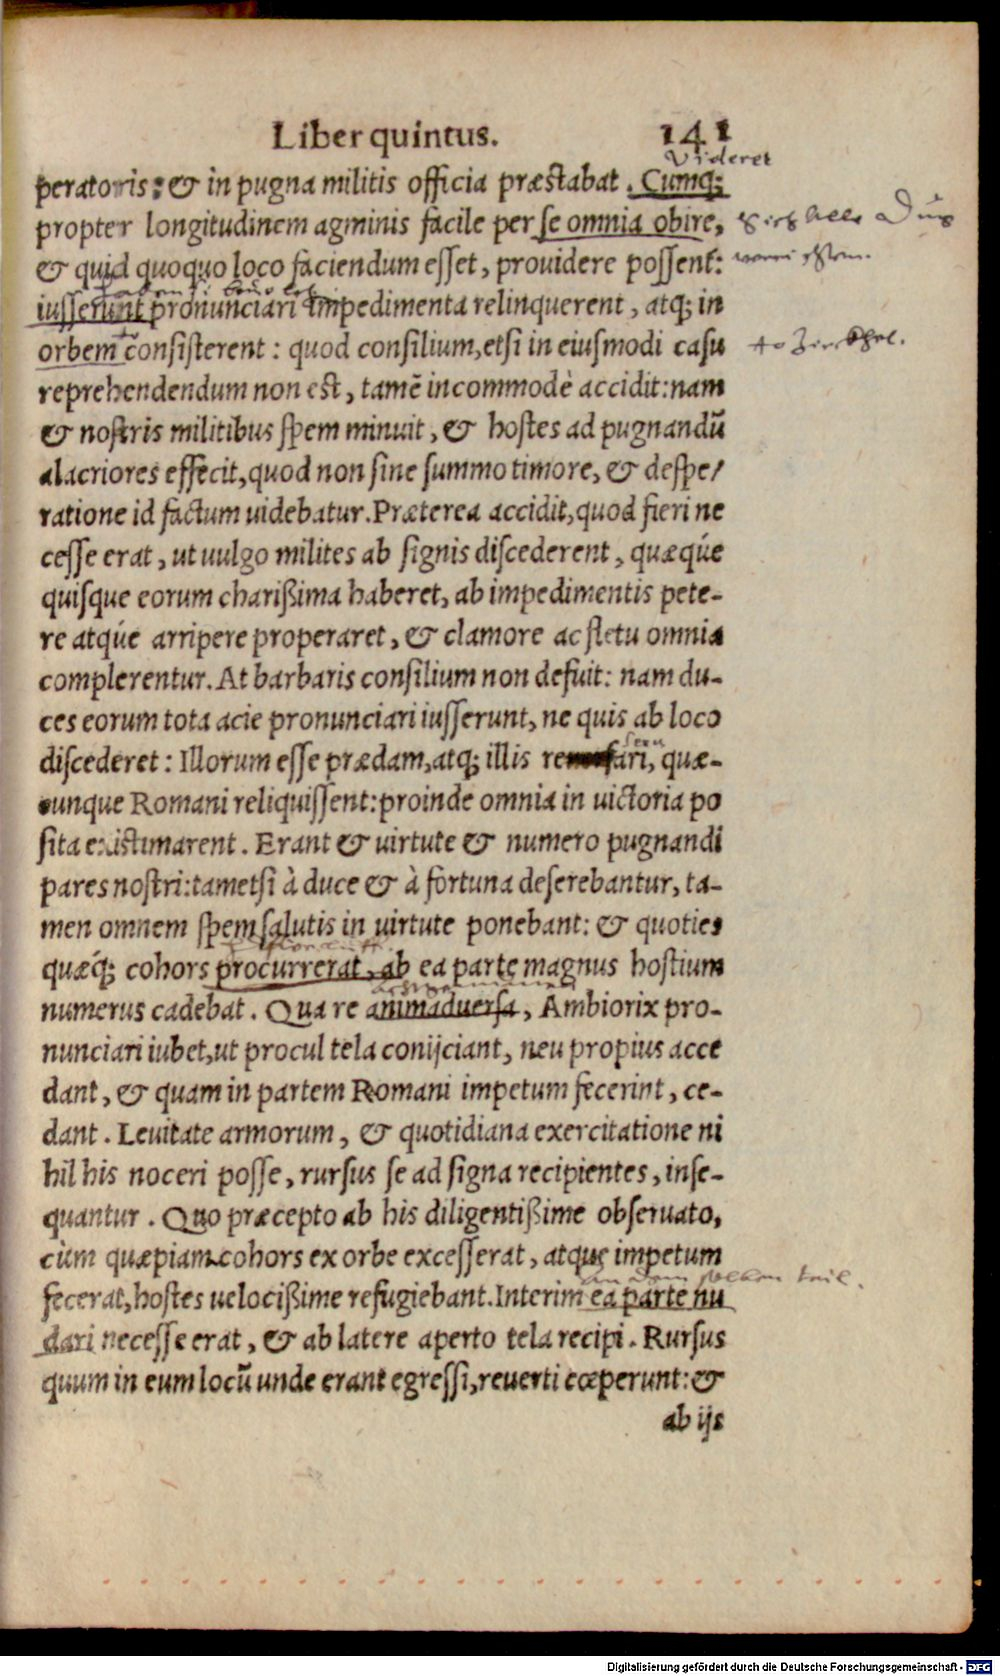 Liber quintus. 141
Videret
peratoris: & in pugna militis officia præstabat. Cumq;
propter longitudinem agminis facile per se omnia obire,
& quid quoquo loco faciendum esset, prouidere possent:
iusserunt pronunciari impedimenta relinquerent, atq; in
orbem consisterent: quod consilium, etsi in eiusmodi casu
reprehendendum non est, tamẽ incommodè accidit: nam
& nostris militibus spem minuit, & hostes ad pugnandũ
alacriores effecit, quod non sine summo timore, & despe/
ratione id factum uidebatur. Præterea accidit, quod fieri ne
cesse erat, ut uulgo milites ab signis discederent, quæqúe
quisque eorum charißima haberet, ab impedimentis pete-
re atqúe arripere properaret, & clamore ac fletu omnia
complerentur. At barbaris consilium non defuit: nam du-
ces eorum tota acie pronunciari iusserunt, ne quis ab loco
discederet: Illorum esse prædam, atq; illis re ari, quæ-
cunque Romani reliquissent: proinde omnia in uictoria po
sita existimarent. Erant & uirtute & numero pugnandi
pares nostri: tametsi à duce & à fortuna deserebantur, ta-
men omnem spem salutis in uirtute ponebant: & quoties
quæq́; cohors procurrerat, ab ea parte magnus hostium
numerus cadebat. Qua re animaduersa, Ambiorix pro-
nunciari iubet, ut procul tela conijciant, neu propius acce
dant, & quam in partem Romani impetum fecerint, ce-
dant. Leuitate armorum, & quotidiana exercitatione ni
hil his noceri posse, rursus se ad signa recipientes, inse-
quantur. Quo præcepto ab his diligentißime obseruato,
cùm quæpiam cohors ex orbe excesserat, atque impetum
an dem selben teil.
fecerat, hostes uelocißime refugiebant. Interim ea parte nu
dari necesse erat, & ab latere aperto tela recipi. Rursus
quum in eum locũ unde erant egressi, reuerti cœperunt: &
ab ijs
Digitalisierung gefördert durch die Deutsche Forschungsgemeinschaft - DFG